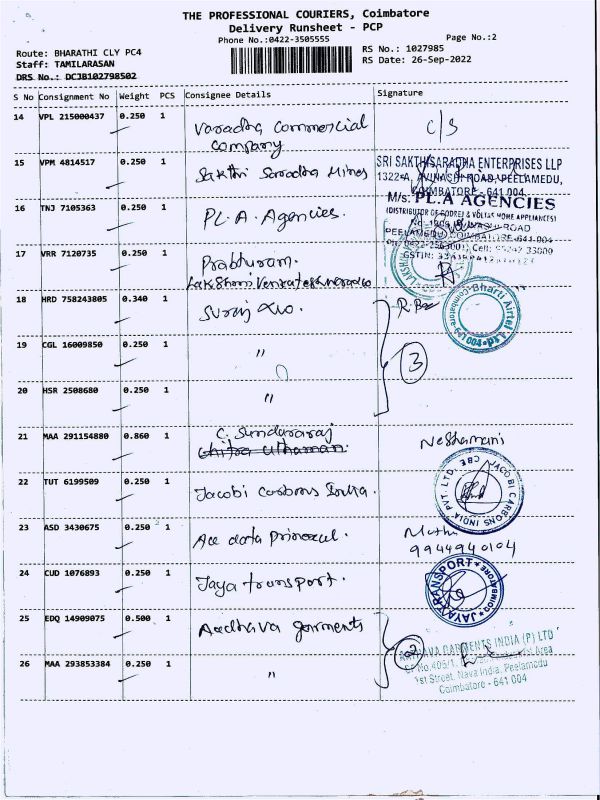 THE PROFESSIONAL COURIERS, Coimbatore
Delivery Runsheet - PCP
Phone No.:0422-3505555
Page No.:2
Route: BHARATHI CLY PC4
RS No.: 1027985
Staff: TAMILARASAN
RS Date: 26-Sep-2022
DRS No.: DCJB102798502
S No Consignment No Weight PCS Consignee Details Signature
14 VPL 215000437 0.250 1 Varadha Commercial C/S
Company
15 VPM 4814517 0.250 1 Sakthi Saradha Mines
SRI SAKTHISARADHA ENTERPRISES LLP
1322-A, AVINASHI ROAD, PEELAMEDU,
COIMBATORE - 641 004
16 TNJ 7105363 0.250 1 P.L.A. Agencies.
M/s. PL.A AGENCIES
(DISTRIBUTOR OF GODREJ & VOLTAS HOME APPLIANCES)
ROAD
PEELAMEDU, COIMBATORE-641 004
17 VRR 7120735 0.250 1 Prabhuram.
GSTIN:
Lakshmi
18 HRD 758243805 0.340 1 Suraj
Bharti Airtel Ltd
19 CGL 16009850 0.250 1 "
3
20 HSR 2508680 0.250 1 "
21 MAA 291154880 0.860 1 C. Sundararaj
Chitra Uthaman.
Neshamani
22 TUT 6199509 0.250 1 Jacobi carbons India.
JACOBI CARBONS INDIA PVT. LTD. CBE
23 ASD 3430675 0.250 1 Ace data
9944940104
24 CUD 1076893 0.250 1 Jaya transport.
JAYA TRANSPORT COIMBATORE
25 EDQ 14909075 0.500 1 Aadhava garments
AADHAVA GARMENTS INDIA (P) LTD
Area
1st Street, Nava India, Peelamedu
Coimbatore - 641 004
2
26 MAA 293853384 0.250 1 "